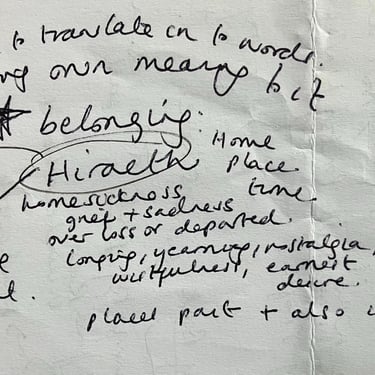 to translate in to words.
own meaning but
* belonging: Home
Hiraeth place
homesickness time
grief + sadness
over loss or departed.
longing, yearning, nostalgia,
wistfulness, earnest
desire.
places past + also